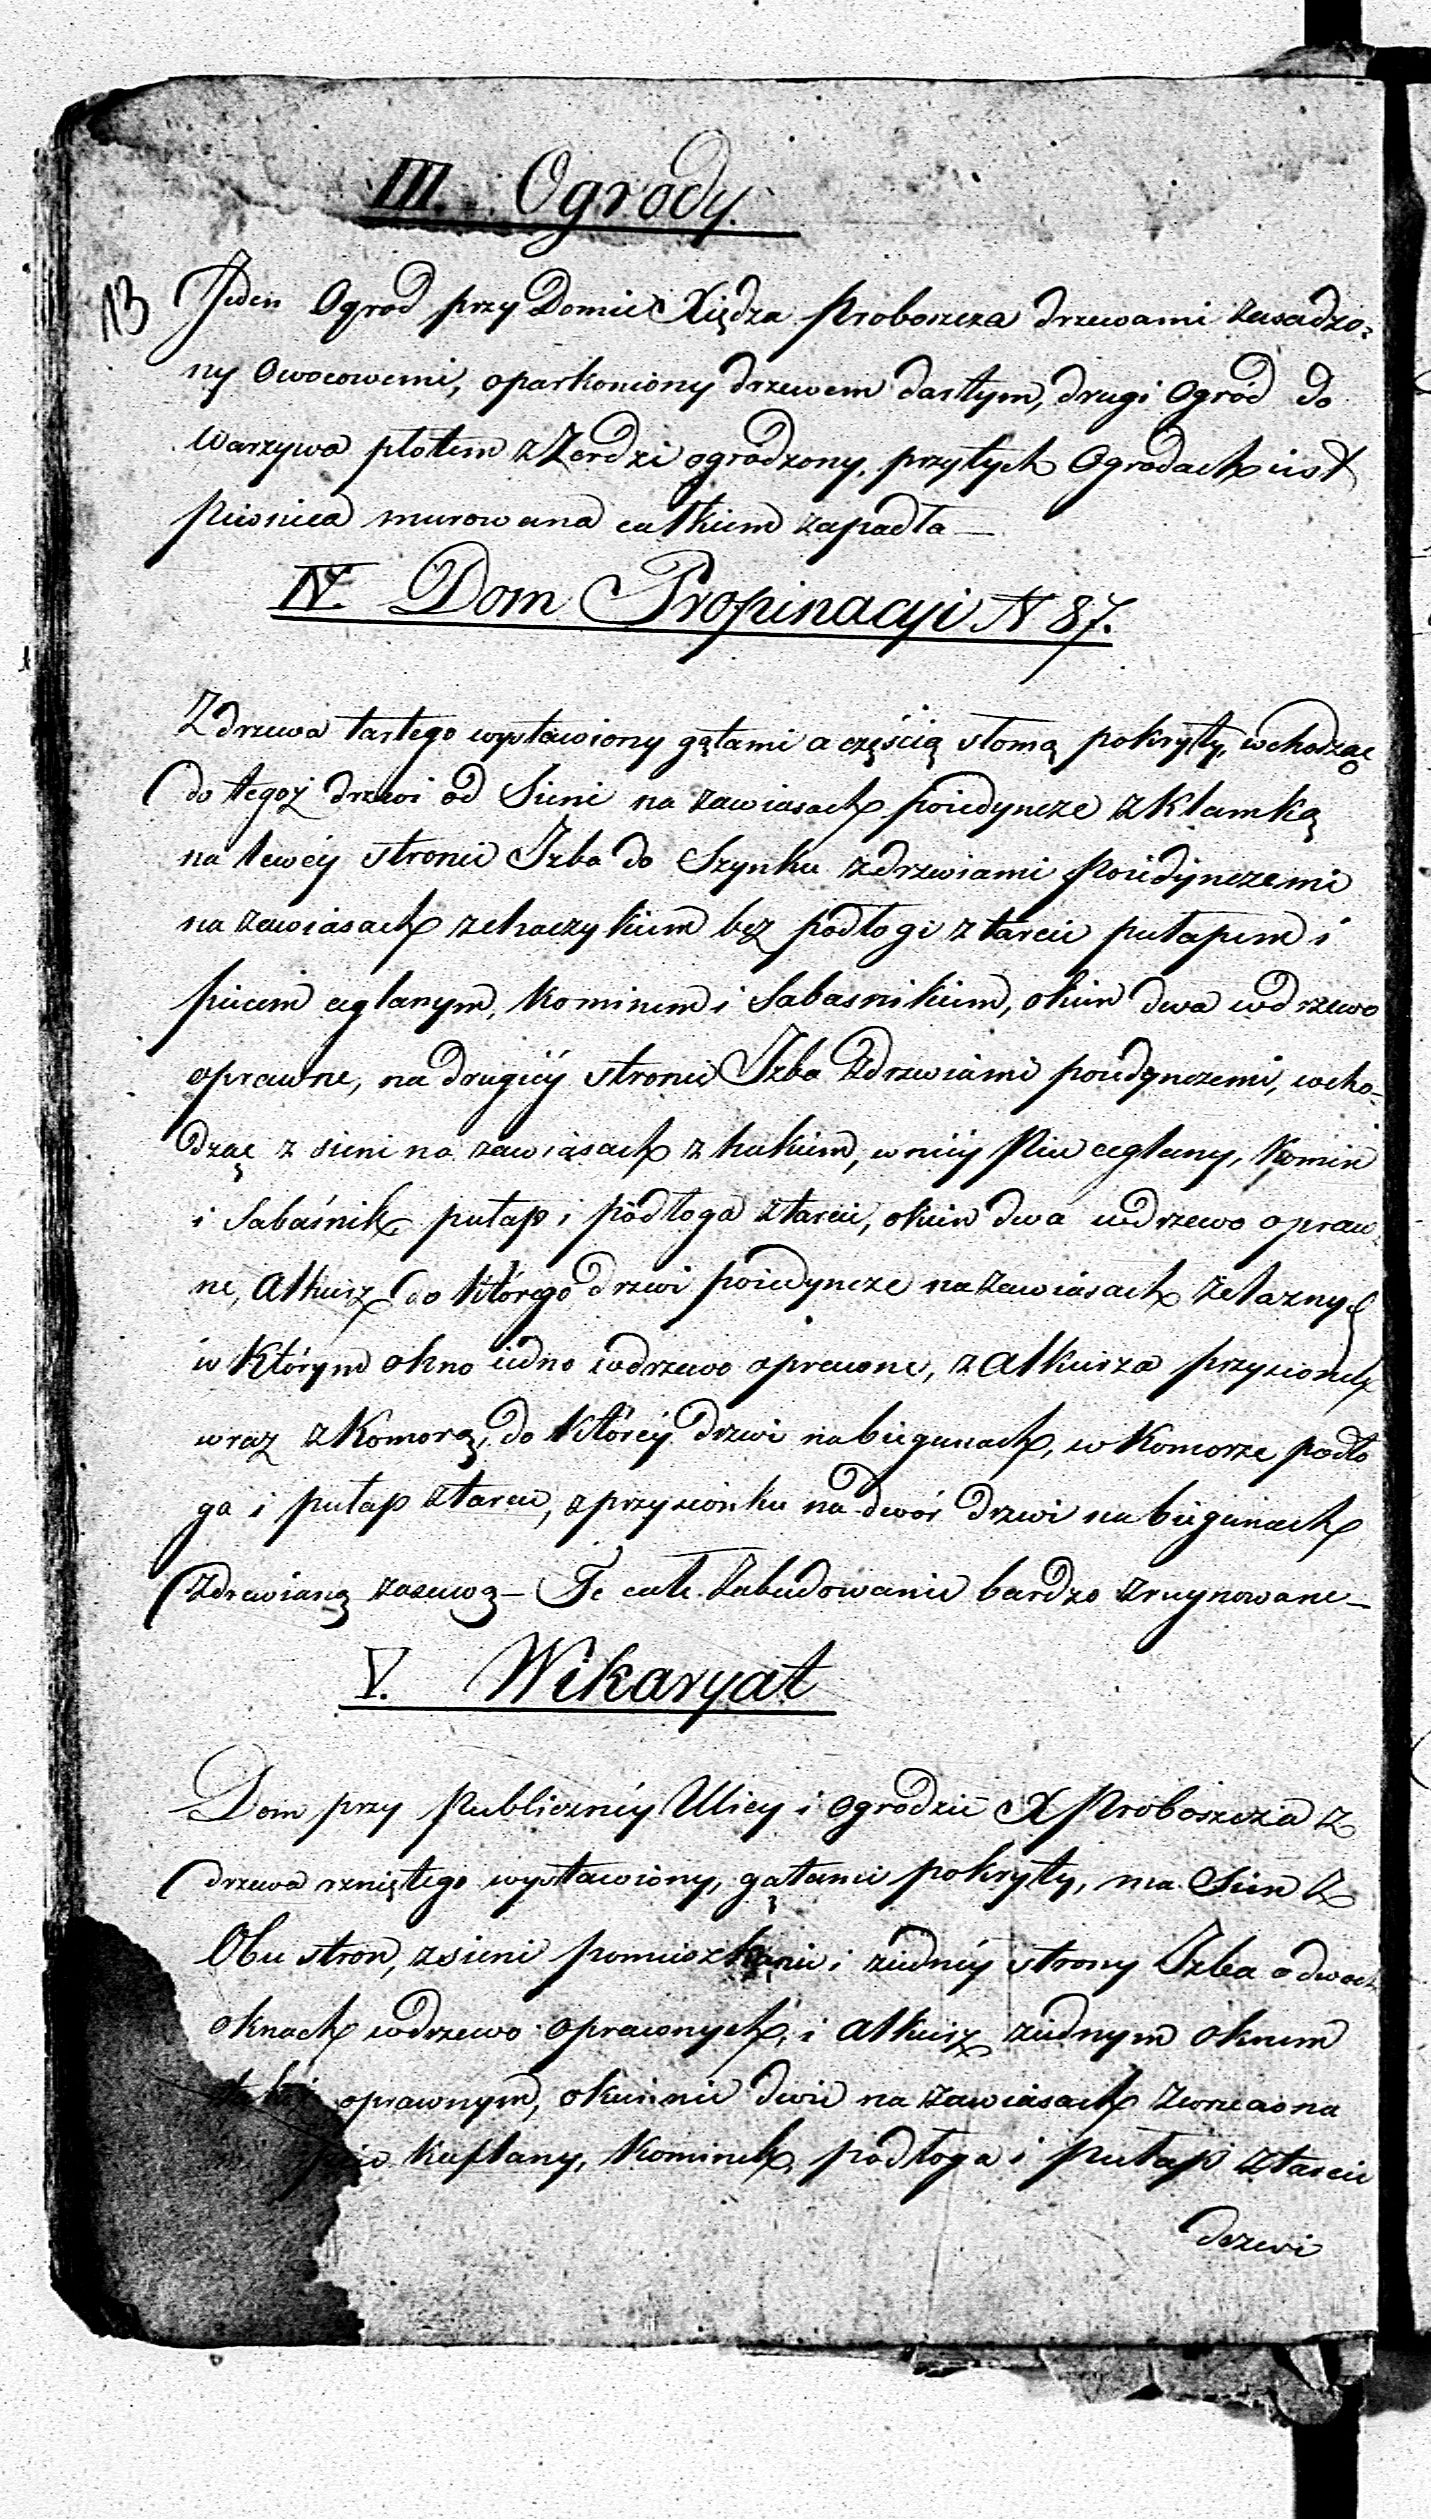 III. Ogrody.
13 Jeden Ogrod przy Domie Xiędza Proboszcza drzewami zasadzo=
ny Owocowemi, oparkoniony drzewem dartym, drugi Ogród do
Warzywa płotem z Żerdzi ogrodzony, przytych Ogrodach iest
Piwnica murowana całkiem zapadła —
IV. Dom Propinacyi N 87.
Z drzewa tartego wystawiony gątami a częścią słomą pokryty, wchodząc
do tegoż drzwi od Sieni na zawiasach poiedyncze z Klamką
na lewéy stronie Izba do Szynku zdrzwiami Poiedynczemi
na zawiasach zhaczykiem bez podłogi z tarcic pułapem i
piecem ceglanym, Kominem i Sabasnikiem, okien dwa wdrzewo
oprawne, na drugiéy stronie Izba zdrzwiami poiedynczemi, wcho=
dząc z sieni na zawiasach z hakiem, w niéy Piec ceglany, Komin
i Sabaśnik pułap i podłoga ztarcic, okien dwa wdrzewo opraw=
ne, Alkierz do którego drzwi poiedyncze na zawiasach żelaznych
w Którym okno iedno wdrzewo oprawne, z Alkierza przysionek
wraz z Komorą, do Któréy drzwi na biegunach, w Komorze podło
ga i pułap ztarcic, z przysionku na dwór drzwi na biegunach
zdrewianą zasuwą — Te całe Zabudowanie bardzo zruynowane —
V. Wikaryat
Dom przy Publicznéy Ulicy i ogrodzie X Proboszcza z
drzewa rzniętego wystawiony, gątami pokryty, ma Sien z
Obu stron, zsieni pomieszkanie i ziednéy strony Izba o dwoch
oknach wdrzewo oprawnych, i Alkierz ziednym oknem
oprawnym, okiennic dwie na zawiasach zewnątrz
Kaflany, Kominek, podłoga i Pułap ztarcic
drzwi